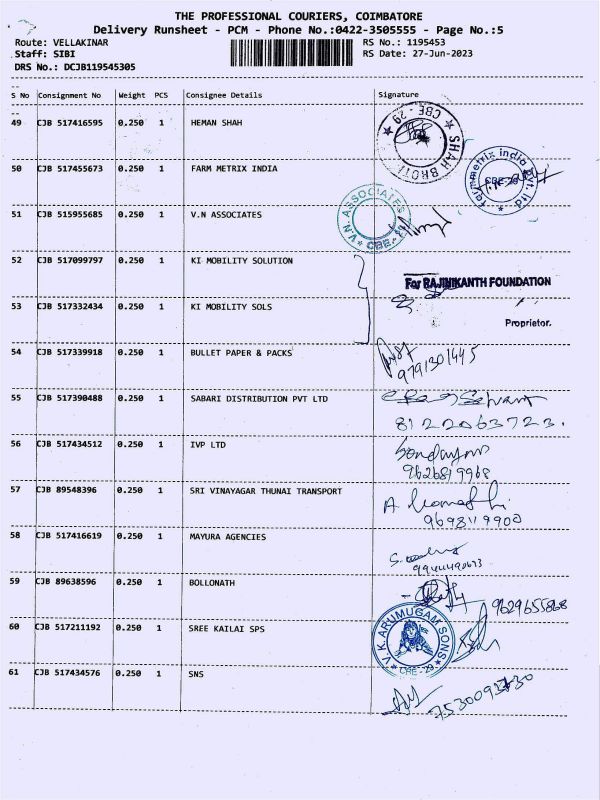 THE PROFESSIONAL COURIERS, COIMBATORE
Delivery Runsheet - PCM - Phone No.:0422-3505555 - Page No.:5
Route: VELLAKINAR RS No.: 1195453
Staff: SIBI RS Date: 27-Jun-2023
DRS No.: DCJB119545305
S No Consignment No Weight PCS Consignee Details Signature
49 CJB 517416595 0.250 1 HEMAN SHAH
SHAH BROTH ★ CBE - 29 ★
50 CJB 517455673 0.250 1 FARM METRIX INDIA
farmmetrix india Pvt. ltd ★ CBE-29
51 CJB 515955685 0.250 1 V.N ASSOCIATES
V.N. ASSOCIATES ★ CBE-
52 CJB 517099797 0.250 1 KI MOBILITY SOLUTION
For RAJINIKANTH FOUNDATION
53 CJB 517332434 0.250 1 KI MOBILITY SOLS
Proprietor.
54 CJB 517339918 0.250 1 BULLET PAPER & PACKS
9791301445
55 CJB 517390488 0.250 1 SABARI DISTRIBUTION PVT LTD
8122063723.
56 CJB 517434512 0.250 1 IVP LTD
9626819968
57 CJB 89548396 0.250 1 SRI VINAYAGAR THUNAI TRANSPORT
9698119900
58 CJB 517416619 0.250 1 MAYURA AGENCIES
59 CJB 89638596 0.250 1 BOLLONATH
9629655868
60 CJB 517211192 0.250 1 SREE KAILAI SPS
V.K.ARUMUGAM SONS ★ CBE-29 ★
61 CJB 517434576 0.250 1 SNS